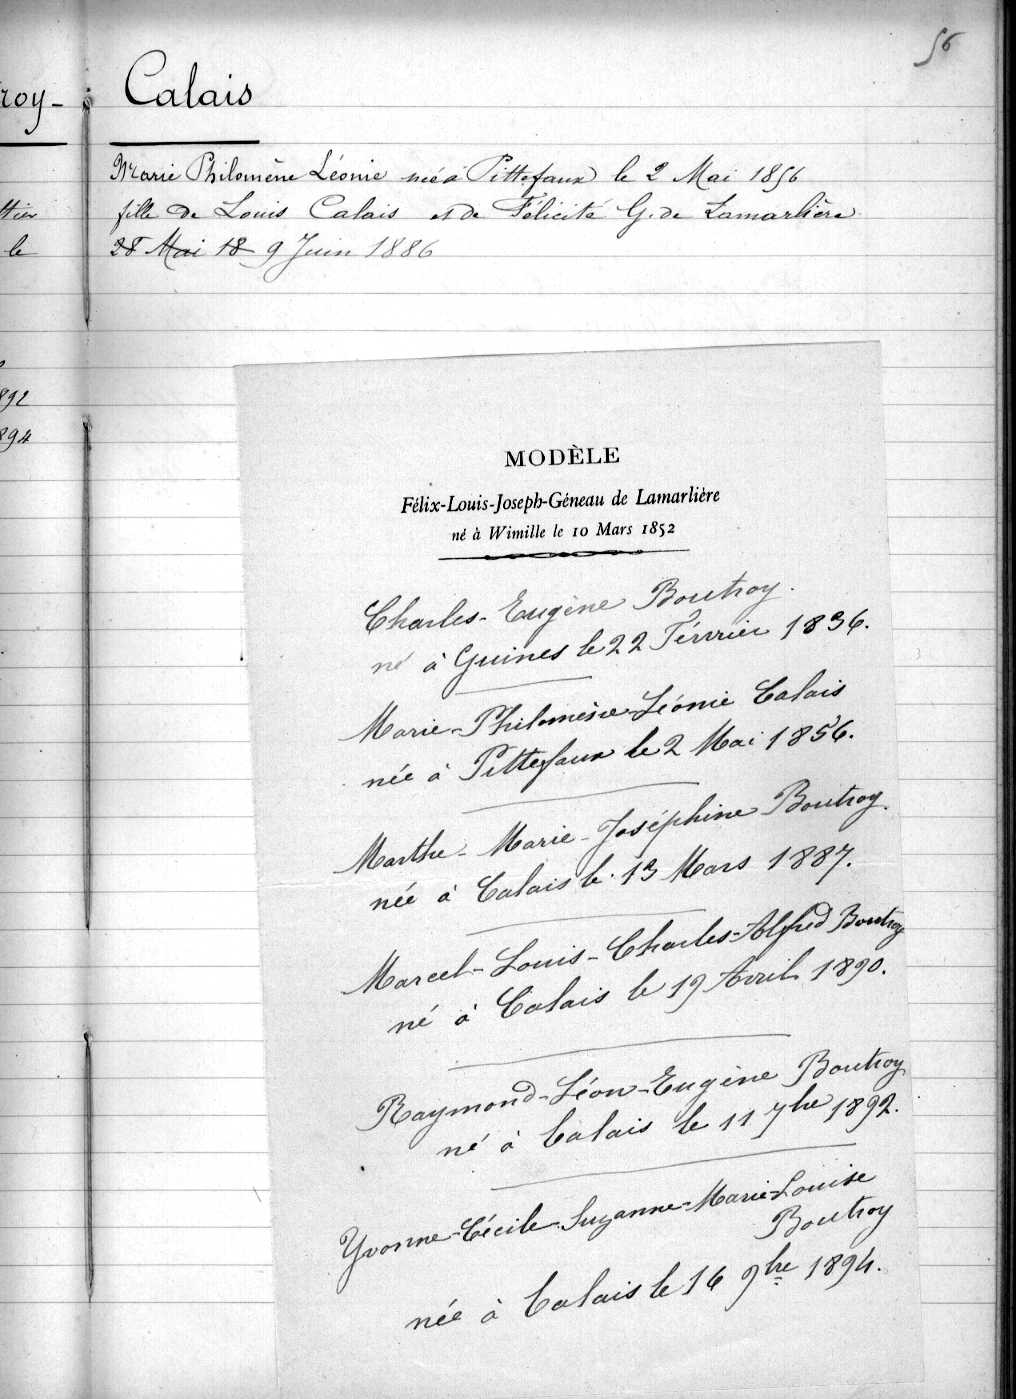 56
roy-
Calais
Marie Philomène Léonie née à Pittefaux le 2 Mai 1856
fille de Louis Calais et de Félicité G. de Lamarlière
le
28 Mai 18 9 Juin 1886
892
894
MODÈLE
Félix-Louis-Joseph-Géneau de Lamarlière
né à Wimille le 10 Mars 1852
Charles-Eugène Boutroy.
né à Guines le 22 Février 1836.
Marie-Philomène-Léonie Calais
née à Pittefaux le 2 Mai 1856.
Marthe-Marie-Joséphine Boutroy.
née à Calais le 13 Mars 1887.
Marcel-Louis-Charles-Alfred Boutroy
né à Calais le 19 Avril 1890.
Raymond-Léon-Eugène Boutroy
né à Calais le 11 7bre 1892.
Yvonne-Cécile-Suzanne-Marie-Louise
Boutroy
née à Calais le 16 9bre 1894.